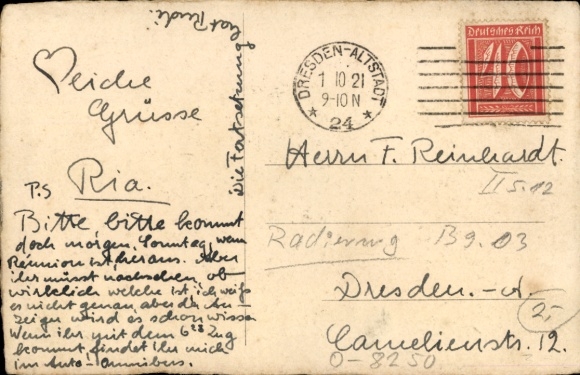 hat Rudi.
Die Fortsetzung
♡liche
Grüsse
Ria.
P.S
Bitte, bitte kommt
doch morgen, Sonntag, wenn
Réunion ist, heraus. Aber
ihr müsst nachsehen, ob
wirklich welche ist, ich weiß
es nicht genau, aber der An-
zeiger wird es schon wissen
Wenn ihr mit dem 6 Zug
kommt, findet ihr mich
im Auto-Omnibus.
DRESDEN-ALTSTADT
1 10 21
9-10 N
* 24 *
Deutsches Reich
40
Herrn F. Reinhardt.
II S. 12
Radierung B9.03
Dresden.-A.
2,-
Camelienstr. 12.
0-8250